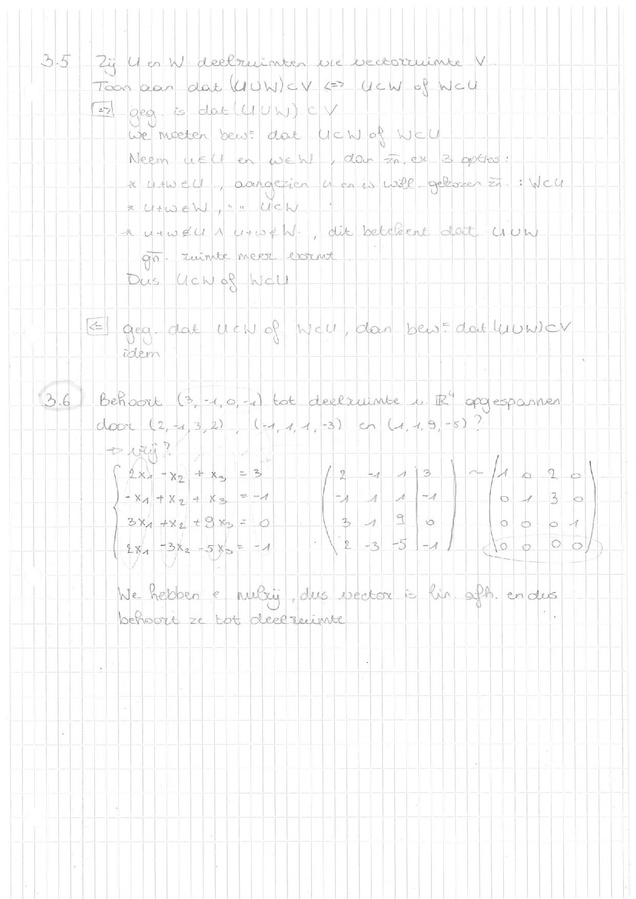 3.5 Zij U en W deelruimten v/e vectorruimte V
Toon aan dat (U∪W)⊂V <=> U⊂W of W⊂U
[=>] geg. is dat (U∪W)⊂V
We moeten bew= dat U⊂W of W⊂U
Neem u∈U en w∈W, dan zn. er 3 opties:
* u+w∈U, aangezien u en w will. gekozen zn. : W⊂U
* u+w∈W, " " U⊂W
* u+w∉U ∧ u+w∉W., dit betekent dat U∪W
gn. ruimte meer vormt.
Dus U⊂W of W⊂U
[<=] geg. dat U⊂W of W⊂U, dan bew= dat (U∪W)⊂V
idem
3.6 Behoort (3,-1,0,-1) tot deelruimte v. ℝ⁴ opgespannen
door (2,-1,3,2), (-1,1,1,-3) en (1,1,9,-5)?
→ vrij?
2x₁ -x₂ + x₃ = 3 ( 2 -1 1 | 3 ) ~ ( 1 0 2 0 )
-x₁ + x₂ + x₃ = -1 ( -1 1 1 | -1 ) ( 0 1 3 0 )
3x₁ +x₂ +9x₃ = 0 ( 3 1 9 | 0 ) ( 0 0 0 1 )
2x₁ -3x₂ -5x₃ = -1 ( 2 -3 -5 | -1 ) ( 0 0 0 0 )
We hebben e nulrij, dus vector is lin. afh. en dus
behoort ze tot deelruimte